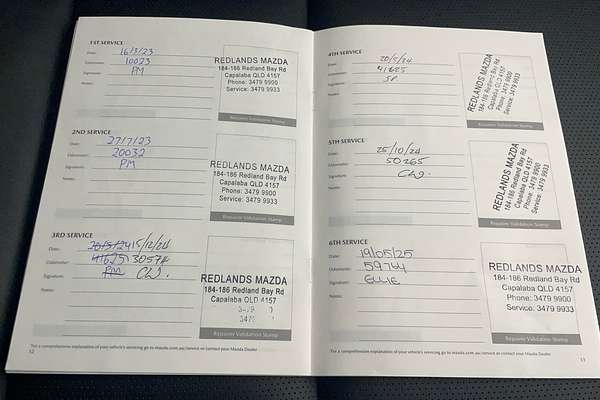 1ST SERVICE
Date: 16/3/23
Odometer: 10023
Signature: PM
Notes:
REDLANDS MAZDA
184-186 Redland Bay Rd
Capalaba QLD 4157
Phone: 3479 9900
Service: 3479 9933
Repairer Validation Stamp
2ND SERVICE
Date: 27/7/23
Odometer: 20032
Signature: PM
Notes:
REDLANDS MAZDA
184-186 Redland Bay Rd
Capalaba QLD 4157
Phone: 3479 9900
Service: 3479 9933
Repairer Validation Stamp
3RD SERVICE
Date: 20/5/24 15/12/24
Odometer: 41625 30574
Signature: PM CW.
Notes:
REDLANDS MAZDA
184-186 Redland Bay Rd
Capalaba QLD 4157
Repairer Validation Stamp
For a comprehensive explanation of your vehicle's servicing go to mazda.com.au/service or contact your Mazda Dealer
12
4TH SERVICE
Date: 20/5/24
Odometer: 41625
Signature: SP
Notes:
REDLANDS MAZDA
184-186 Redland Bay Rd
Capalaba QLD 4157
Phone: 3479 9900
Service: 3479 9933
Repairer Validation Stamp
5TH SERVICE
Date: 25/10/24
Odometer: 50265
Signature: CW.
Notes:
REDLANDS MAZDA
184-186 Redland Bay Rd
Capalaba QLD 4157
Phone: 3479 9900
Service: 3479 9933
Repairer Validation Stamp
6TH SERVICE
Date: 19/05/25
Odometer: 59744
Signature: ELLIE
Notes:
REDLANDS MAZDA
184-186 Redland Bay Rd
Capalaba QLD 4157
Phone: 3479 9900
Service: 3479 9933
Repairer Validation Stamp
For a comprehensive explanation of your vehicle's servicing go to mazda.com.au/service or contact your Mazda Dealer
13